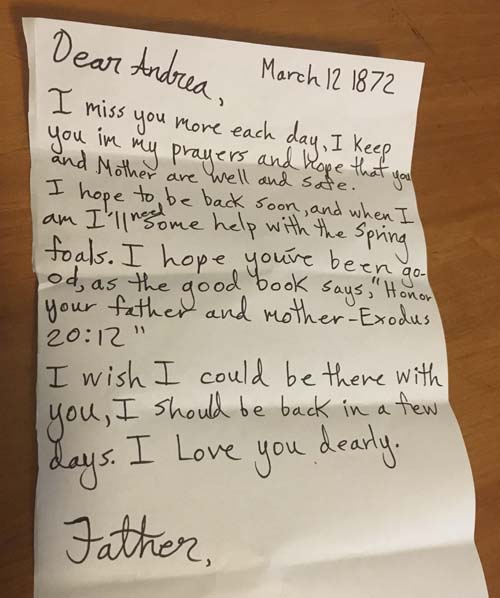 Dear Andrea,
March 12 1872
I miss you more each day, I keep
you in my prayers and hope that you
and Mother are well and safe.
I hope to be back soon, and when I
am I'll need some help with the Spring
foals. I hope you've been go-
od, as the good book says, "Honor
your father and mother-Exodus
20:12"
I wish I could be there with
you, I should be back in a few
days. I Love you dearly.
Father,